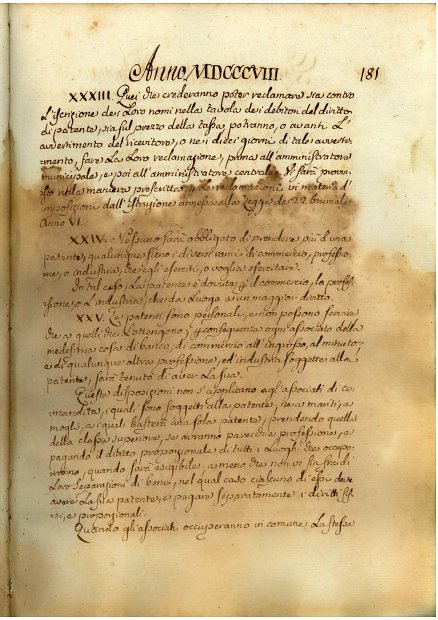 Anno MDCCCVIII.
181
XXXIII. Quei che crederanno poter reclamare sia contro
l'iscrizione dei loro nomi nella tavola dei debitori del diritto
di patente, sia sul prezzo della tassa potranno, o avanti l'
avvertimento del ricevitore, o nei dieci giorni di tale avverti-
mento, fare la loro reclamazione, prima all'amministratore
municipale, e poi all'amministratore centrale. Vi sarà provvi-
sto nella maniera prescritta per le reclamazioni in materia d'
imposizioni dall'Istruzione annessa alla legge de 22 brumale
Anno VI.
XXIV. Nessuno sarà obbligato di prendere più d'una
patente, qualunque sieno i diversi rami di commercio, professio-
ne, o industria, ch'egli eserciti, o voglia esercitare.
In tal caso, la patente è dovuta per il commercio, la profes-
sione, o l'industria, che da luogo a un maggior diritto.
XXV. Le patenti sono personali, e non possono servire
che a quelli che l'ottengono; per conseguenza ogni associato della
medesima casa di banco, di commercio all'ingrosso, al minuto,
e di qualunque altra professione, ed industria soggette alla
patente, sarà tenuto di aver la sua.
Queste disposizioni non s'applicano agl'associati di co-
mandita, i quali sono soggetti alla patente, ne a mariti, e
mogli, a i quali basterà una sola patente, prendendo quella
della classe superiore, se avranno parecchie professione, e
pagando il dritto proporzionale di tutti i luoghi che occupe-
ranno, quando sarà esigibile, a meno che non vi sia fra di
loro separazioni di beni, nel qual caso ciascuno di essi deve
avere la sua patente, e pagare separatamente i diritti fis-
si, e proporzionali.
Quando gli associati occuperanno in comune la stessa